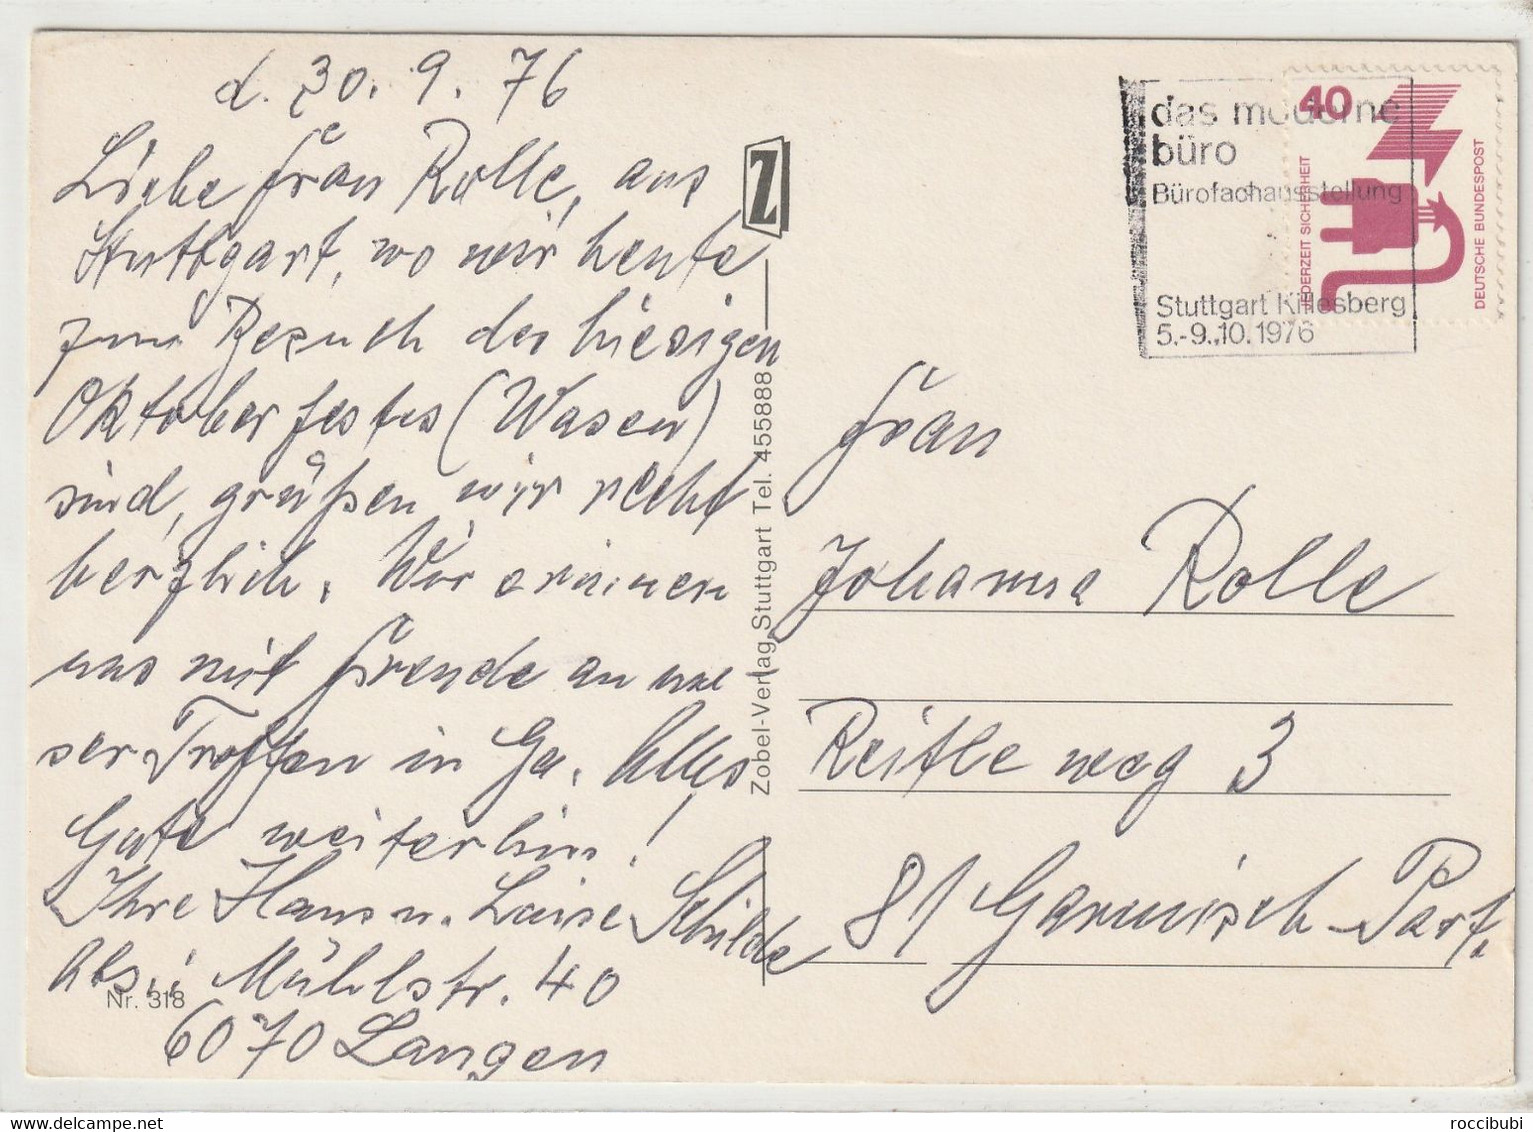 d. 30. 9. 76
Liebe Frau Rolle, aus
Stuttgart, wo wir heute
zum Besuch des hiesigen
Oktoberfestes (Wasen)
sind, grüßen wir recht
herzlich. Wir erinnern
uns mit Freude an un-
ser Treffen in Ga. Alles
Gute weiterhin!
Ihre Hans u. Luise Schilde
Abs.: Mühlstr. 40
Nr. 318
6070 Langen
Z
Zobel-Verlag, Stuttgart Tel. 455888
das moderne
büro
Bürofachausstellung
Stuttgart Killesberg
5.-9.10.1976
40
JEDERZEIT SICHERHEIT
DEUTSCHE BUNDESPOST
Frau
Johanna Rolle
Reitle weg 3
81 Garmisch-Part.
delcampe.net
roccibubi